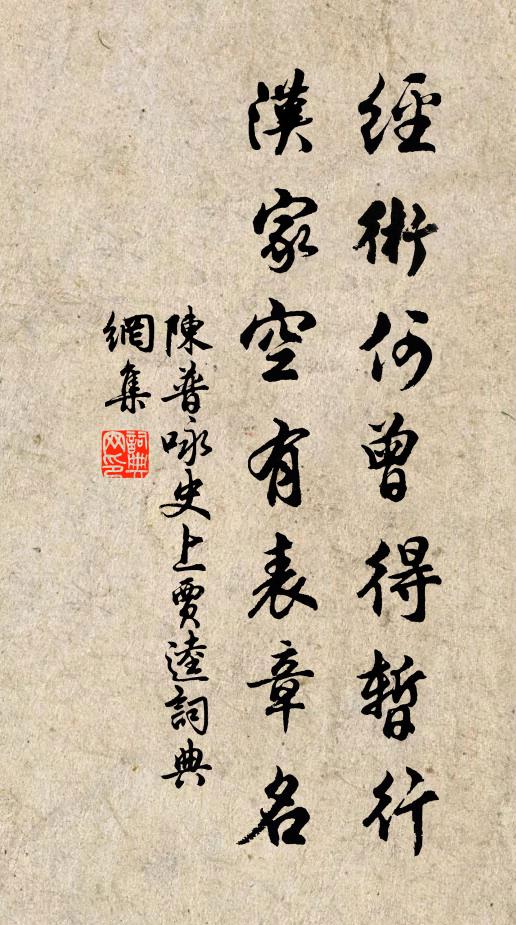 經術何曾得暫行
漢家空有表章名
陳普咏史上賈逵詞典
網集
詞典
网印